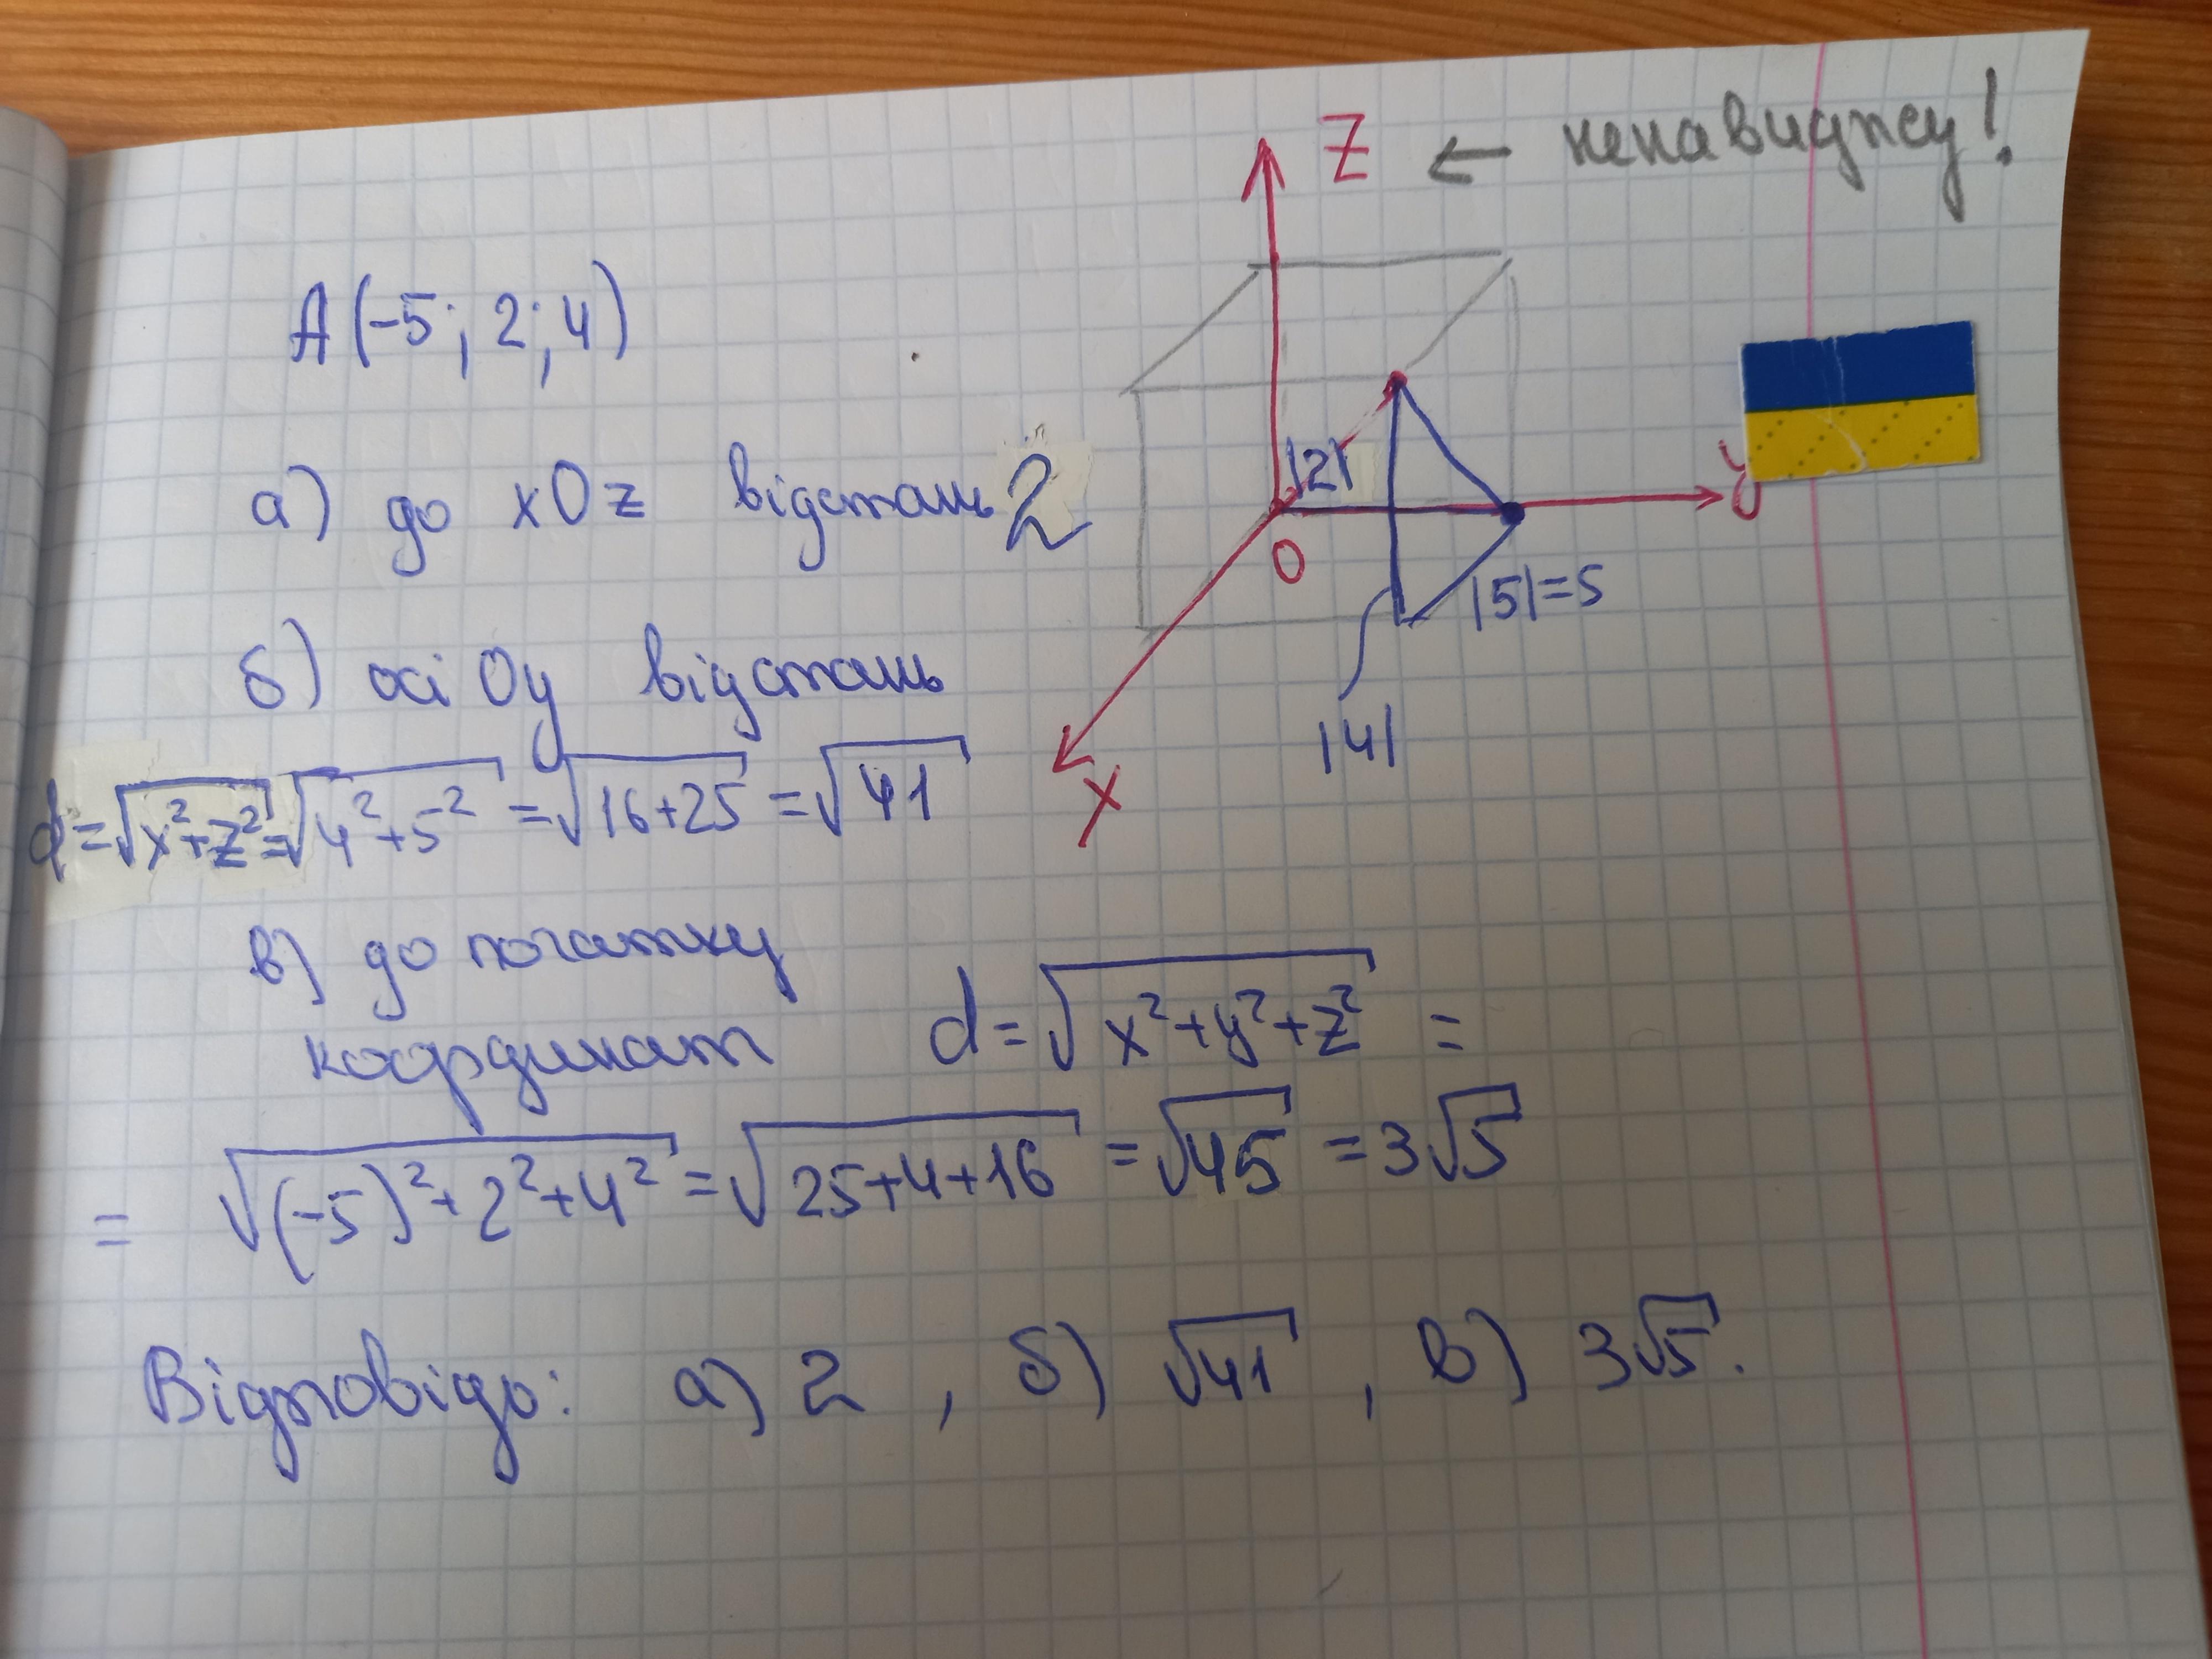 Z ← ненавиджу!
A(-5; 2; 4)
а) до xOz відстань 2
|2|
y
O
|5|=5
|4|
X
б) осі Oy відстань
d=√x²+z²=√4²+5² =√16+25 =√41
в) до початку
координат d=√x²+y²+z² =
= √(-5)²+2²+4² =√25+4+16 =√45 =3√5
Відповідь: а) 2 , б) √41 , в) 3√5.